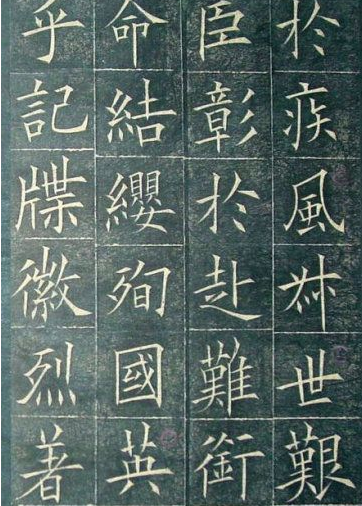 於疾風叔世艱
臣彰於赴難銜
命結纓殉國英
乎記牒徽烈著